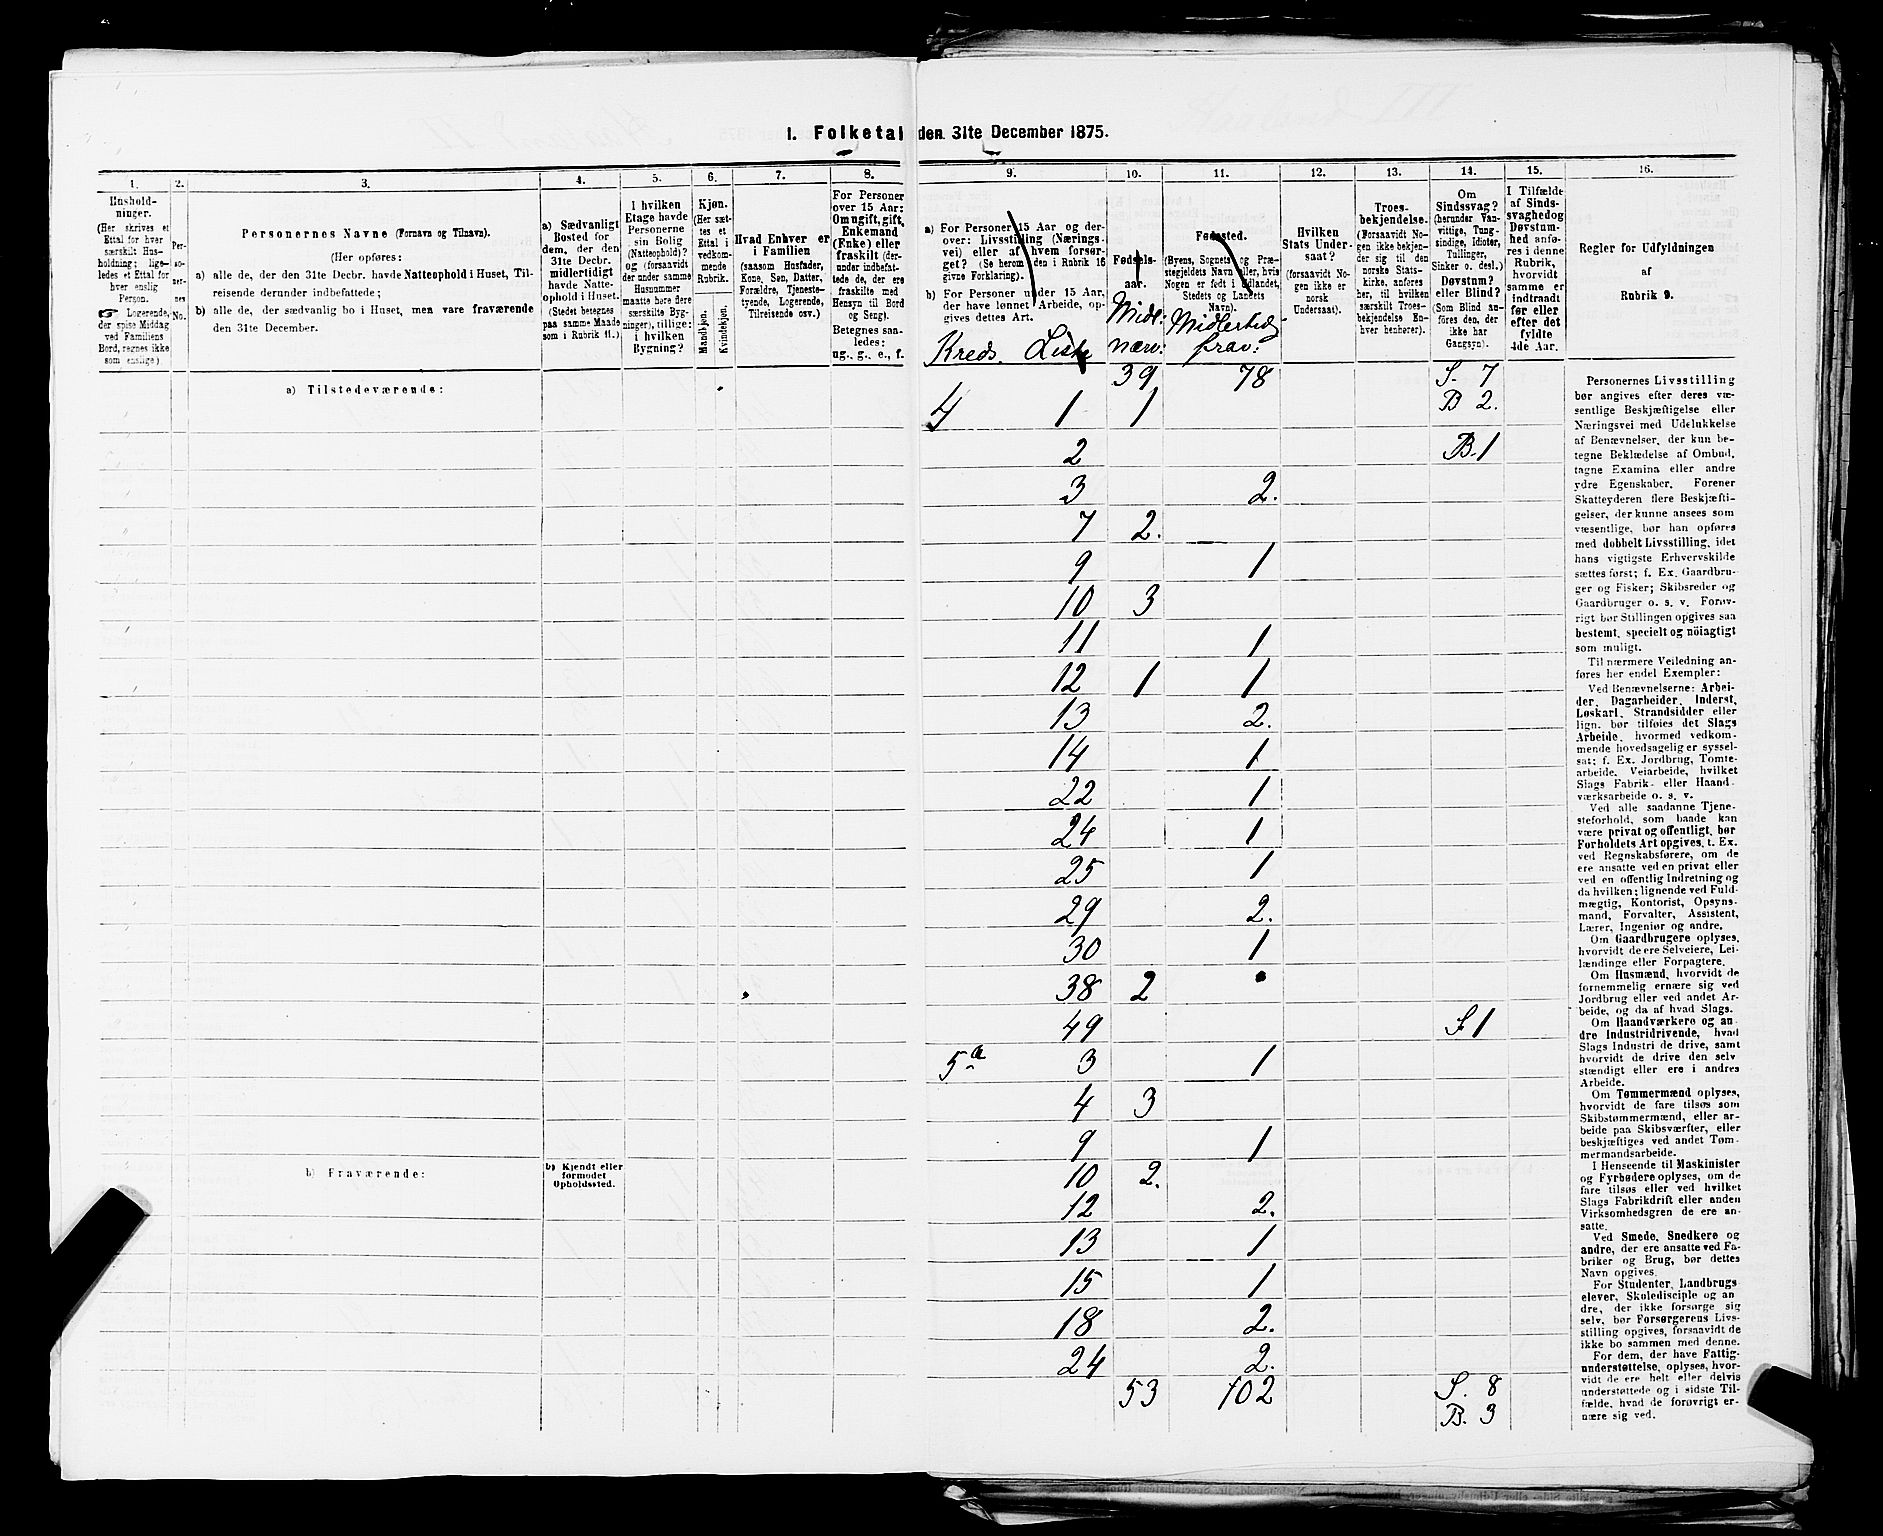 1. Folketal den 31te December 1875.
1.
2.
3.
4.
5.
6.
7.
8.
9.
10.
11.
12.
13.
14.
15.
16.
Husholdninger.
(Her skrives et Ettal for hver særskilt Husholdning; ligeledes et Ettal for hver enslig Person.
☞ Logerende, der spise Middag ved Familiens Bord, regnes ikke som enslige.)
Personernes No.
Personernes Navne (Fornavn og Tilnavn).
(Her opføres:
a) alle de, der den 31te Decbr. havde Natteophold i Huset, Tilreisende derunder indbefattede;
b) alle de, der sædvanlig bo i Huset, men vare fraværende den 31te December.
a) Sædvanligt Bosted for dem, der den 31te Decbr. midlertidigt havde Natteophold i Huset. (Stedet betegnes paa samme Maade som i Rubrik 11.)
I hvilken Etage havde Personerne sin Bolig (Natteophold)? og (forsaavidt der under samme Husnummer maatte høre flere særskilte Bygninger), tillige: i hvilken Bygning?
Kjøn.
(Her sættes et Ettal i vedkommende Rubrik.
Mandkjøn.
Kvindekjøn.
Hvad Enhver er i Familien
(saasom Husfader, Kone, Søn, Datter, Forældre, Tjenestetyende, Logerende, Tilreisende osv.)
For Personer over 15 Aar: Om ugift, gift, Enkemand (Enke) eller fraskilt (derunder indbefattede de, der ere fraskilte med Hensyn til Bord og Seng).
Betegnes saaledes: ug., g., e., f.
a) For Personer 15 Aar og derover: Livsstilling (Næringsvei) eller af hvem forsørget? (Se herom den i Rubrik 16 givne Forklaring).
b) For Personer under 15 Aar, der have lønnet Arbeide, opgives dettes Art.
Fødselsaar.
Fødested.
(Byens, Sognets og Præstegjeldets Navn eller, hvis Nogen er født i Udlandet, Stedets og Landets Navn).
Hvilken Stats Undersaat?
(forsaavidt Nogen ikke er norsk Undersaat).
Troesbekjendelse.
(Forsaavidt Nogen ikke bekjender sig til den norske Statskirke, anføres her, til hvilken særskilt Troesbekjendelse Enhver henhører).
Om Sindssvag? (herunder Vanvittige, Tungsindige, Idioter, Tullinger, Sinker o. desl.) Døvstum? eller Blind? (Som Blind anføres den, der ikke har Gangsyn).
I Tilfælde af Sindssvaghed og Døvstumhed anføres i denne Rubrik, hvorvidt samme er indtraadt før eller efter det fyldte 4de Aar.
Regler for Udfyldningen af Rubrik 9.
Kreds. Liste
Midl: nærv:
Midlertidig frav:
a) Tilstedeværende:
39 78 S. 7
4 1 1 B 2.
2 B. 1
3 2.
7 2.
9 1
10 3
11 1
12 1 1
13 2.
14 1
22 1
24 1
25 1
29 2.
30 1
38 2
49 S 1
5a 3 1
4 3
9 1
b) Fraværende:
b) Kjendt eller formodet Opholdssted.
10 2.
12 2.
13 1
15 1
18 2.
24 2.
53 102 S. 8
B. 3
Personernes Livsstilling bør angives efter deres væsentlige Beskjæftigelse eller Næringsvei med Udelukkelse af Benævnelser, der kun betegne Beklædelse af Ombud, tagne Examina eller andre ydre Egenskaber. Forener Skatteyderen flere Beskjæftigelser, der kunne ansees som væsentlige, bør han opføres med dobbelt Livsstilling, idet hans vigtigste Erhvervskilde sættes først; f. Ex. Gaardbruger og Fisker; Skibsreder og Gaardbruger o. s. v. Forøvrigt bør Stillingen opgives saa bestemt, specielt og nöiagtigt som muligt.
Til nærmere Veiledning anføres her endel Exempler:
Ved Benævnelserne: Arbeider, Dagarbeider, Inderst, Løskarl, Strandsidder eller lign. bør tilføies det Slags Arbeide, hvormed vedkommende hovedsagelig er sysselsat; f. Ex. Jordbrug, Tomtearbeide, Veiarbeide, hvilket Slags Fabrik- eller Haandværksarbeide o. s. v.
Ved alle saadanne Tjenesteforhold, som baade kan være privat og offentligt, bør Forholdets Art opgives, t. Ex. ved Regnskabsførere, om de ere ansatte ved en privat eller ved en offentlig Indretning og da hvilken; lignende ved Fuldmægtig, Kontorist, Opsynsmand, Forvalter, Assistent, Lærer, Ingeniør og andre.
Om Gaardbrugere oplyses, hvorvidt de ere Selveiere, Leilændinge eller Forpagtere.
Om Husmænd, hvorvidt de fornemmelig ernære sig ved Jordbrug eller ved andet Arbeide, og da af hvad Slags.
Om Haandværkere og andre Industridrivende, hvad Slags Industri de drive, samt hvorvidt de drive den selvstændigt eller ere i andres Arbeide.
Om Tømmermænd oplyses, hvorvidt de fare tilsøs som Skibstømmermænd, eller arbeide paa Skibsværfter, eller beskjæftiges ved andet Tømmermandsarbeide.
I Henseende til Maskinister og Fyrbødere oplyses, om de fare tilsøs eller ved hvilket Slags Fabrikdrift eller anden Virksomhedsgren de ere ansatte.
Ved Smede, Snedkere og andre, der ere ansatte ved Fabriker og Brug, bør dettes Navn opgives.
For Studenter, Landbrugselever, Skoledisciple og andre, der ikke forsørge sig selv, bør Forsørgerens Livsstilling opgives, forsaavidt de ikke bo sammen med denne.
For dem, der have Fattigunderstøttelse, oplyses, hvorvidt de ere helt eller delvis understøttede og i sidste Tilfælde, hvad de forøvrigt ernære sig ved.